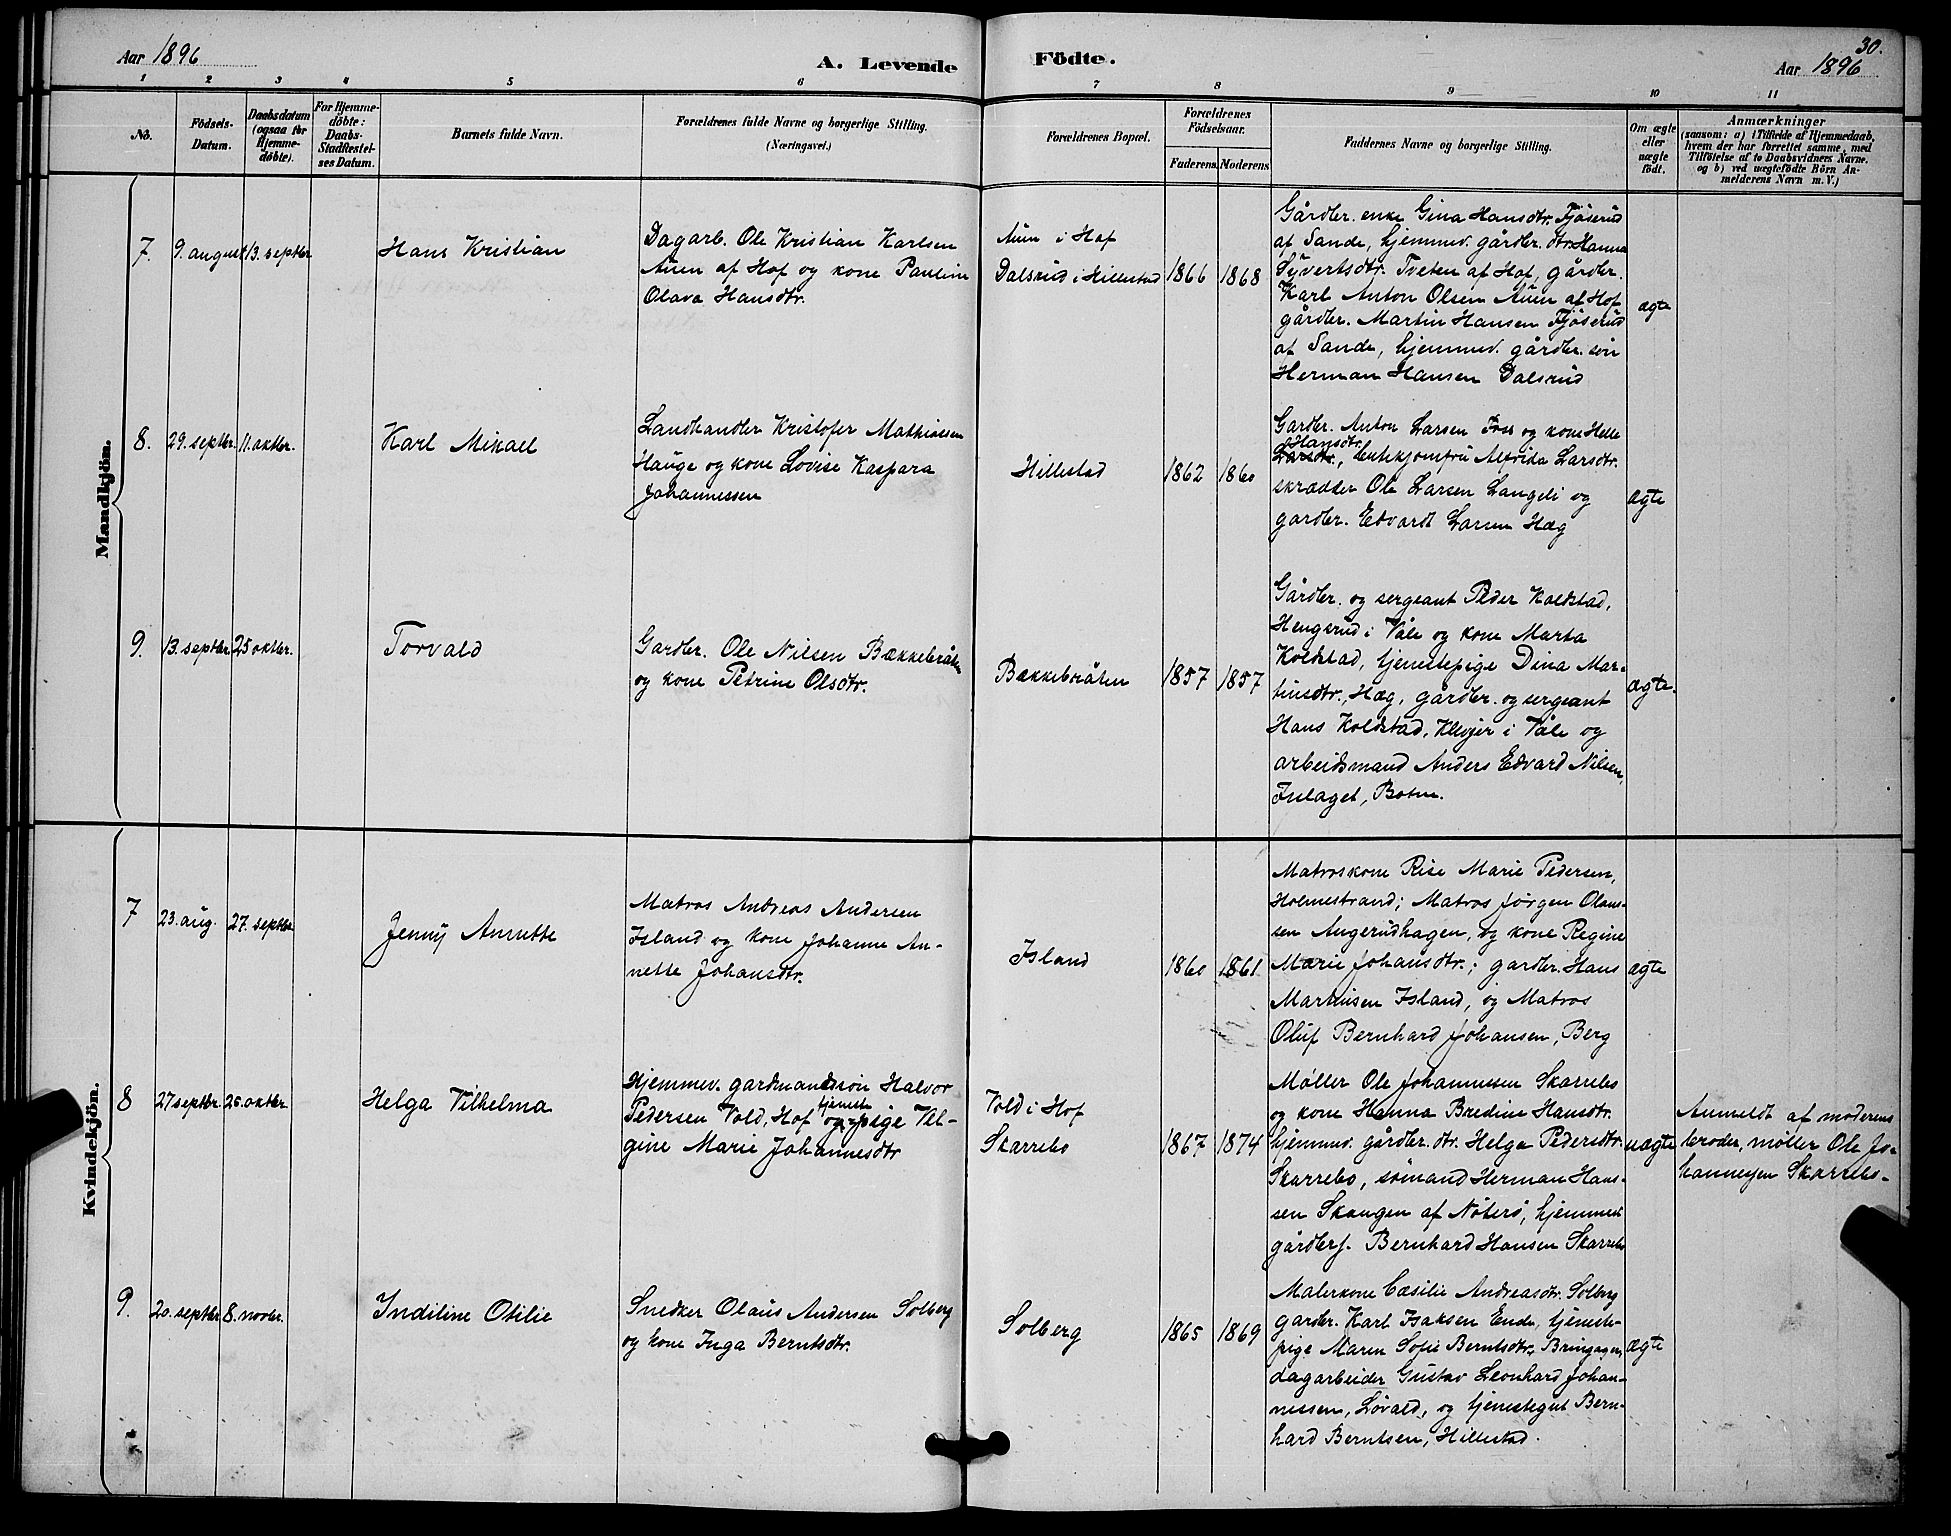 Aar 1896
A. Levende
Födte.
30.
Aar 1896
1 2 3 4 5 6 7 8 9 10 11
No.
Födsels-
Datum.
Daabsdatum
(ogsaa for
Hjemme-
döbte).
For Hjemme-
döbte:
Daabs-
Stadfæstel-
ses Datum.
Barnets fulde Navn.
Forældrenes fulde Navne og borgerlige Stilling.
(Næringsvei.)
Forældrenes Bopæl.
Forældrenes
Födselsaar.
Faderens. Moderens.
Faddernes Navne og borgerlige Stilling.
Om ægte
eller
uægte
födt.
Anmærkninger
(saasom: a) i Tilfælde af Hjemmedaab,
hvem der har forrettet samme, med
Tilföielse af to Daabsvidners Navne.
og b) ved uægtefödte Börn An-
melderens Navn m. V.)
Mandkjön.
7. 9. august 13. septbr.
Hans Kristian
Dagarb. Ole Kristian Karlsen
Auen af Hof og kone Pauline
Olava Hansdtr.
Auen i Hof
Dalsrud i Hillestad
1866 1868
Gårdbr. enke Gina Hansdtr. Fjøserud
af Sande, hjemmev. gårdbr. dtr. Hanna
Syvertsdtr. Tveten af Hof, gårdbr.
Karl Anton Olsen Auen af Hof
gårdbr. Martin Hansen Fjøserud
af Sande, hjemmev. gårdbr. søn
Herman Hansen Dalsrud
ægte
8. 29. septbr. 11. oktbr.
Karl Mikael
Landhandler Kristofer Mathiassen
Hauge og kone Lovise Kaspara
Johannessen
Hillestad
1862 1860
Gardbr. Anton Larsen Foss og kone Helle
Hansdtr.
Larsdtr., butikjomfru Alfrida Larsdtr.
skrædder Ole Larsen Langeli og
gardbr. Edvardt Larsen Hæg
ægte
9. 13. septbr. 25 oktbr.
Torvald
Gardbr. Ole Nilsen Bækkebråten
og kone Petrine Olsdtr.
Bækkebråten
1857 1857
Gårdbr. og sergeant Peder Koldstad,
Hengsrud i Våle og kone Marta
Koldstad, tjenestepige Dina Mar-
tinsdtr., Hæg, gårdbr. og sergeant
Hans Koldstad, Klevjer i Våle og
arbeidsmand Anders Edvard Nilsen,
Inlaget, Botne.
ægte.
Kvindekjön.
7 23. aug. 27. septbr.
Jenny Annette
Matros Andreas Andersen
Island og kone Johanne An-
nette Johansdtr.
Island
1860 1861.
Matroskone Rise Marie Pedersen,
Holmestrand; Matros Jørgen Olaus-
sen Angerudhagen, og kone Regine
Marie Johansdtr.; gardbr. Hans
Martinsen Island, og Matros
Oluf Bernhard Johansen, Berg
ægte
8 27 septbr. 25. oktbr.
Helga Vilhelma
Hjemmev. gardmandssøn Halvor
Pedersen Vold, Hof og tjenestepige Vil-
gine Marie Johannesdtr
Vold i Hof
Skarrebo
1867 1874
Møller Ole Johannessen Skarrebo
og kone Hanna Bredine Hansdtr.
hjemmev. gårdbr. dtr. Helga Pedersdtr.
Skarrebo, sømand Herman Hans-
sen Skaugen af Nøterø, hjemmev.
gårdbrs. Bernhard Hansen Skarrebo
uægte
Anmeldt af moderens
broder, møller Ole Jo-
hannessen Skarrebo.
9. 20. septbr 8. novbr.
Indiline Otilie
Snedker Olaus Andersen Solberg
og kone Inga Berntsdtr.
Solberg
1865 1869
Malerkone Cæsilie Andreasdtr. Solberg
gardbr. Karl Isaksen Ende, tjeneste-
pige Maren Sofie Berntsdtr., Bringagen,
dagarbeider Gustav Leonhard Johan-
nessen, Løvald, og tjenestegut Bern-
hard Berntsen, Hillestad.
ægte